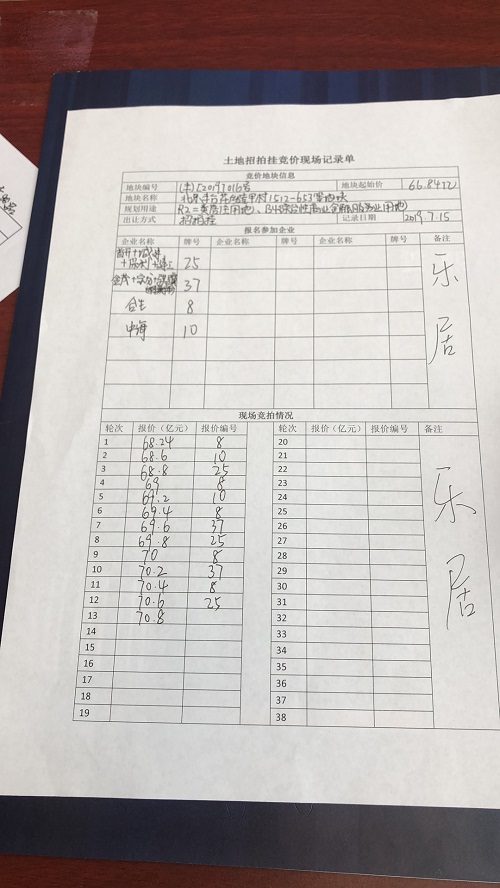 土地招拍挂竞价现场记录单
竞价地块信息
地块编号 地块起始价 66.84亿
地块名称
规划用途 R2二类居住用地、B4综合性商业金融服务业用地
出让方式 招拍挂 记录日期 2019.7.15
报名参加企业
企业名称 牌号 企业名称 牌号 企业名称 牌号 备注
25
37
合生 8
中海 10
乐居
现场竞拍情况
轮次 报价（亿元） 报价编号 轮次 报价（亿元） 报价编号 备注
1 68.24 8 20
2 68.6 10 21
3 68.8 25 22
4 69 8 23
5 69.2 10 24
6 69.4 8 25
7 69.6 37 26
8 69.8 25 27
9 70 8 28
10 70.2 37 29
11 70.4 8 30
12 70.6 25 31
13 70.8 32
14 33
15 34
16 35
17 36
18 37
19 38
乐居